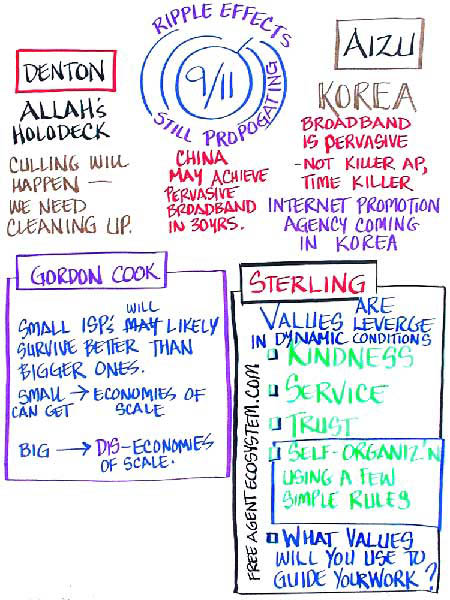 RIPPLE EFFECTS
9/11
STILL PROPOGATING
DENTON
ALLAH's
HOLODECK
CULLING WILL
HAPPEN —
WE NEED
CLEANING UP.
CHINA
MAY ACHIEVE
PERVASIVE
BROADBAND
IN 30YRS.
AIZU
KOREA
BROADBAND
IS PERVASIVE
-NOT KILLER AP,
TIME KILLER
INTERNET PROMOTION
AGENCY COMING
IN KOREA
GORDON COOK
WILL
SMALL ISP's MAY LIKELY
SURVIVE BETTER THAN
BIGGER ONES.
SMALL → ECONOMIES OF
CAN GET SCALE
BIG → DIS-ECONOMIES
OF SCALE.
STERLING
VALUES ARE LEVERGE
IN DYNAMIC CONDITIONS
KINDNESS
SERVICE
TRUST
SELF-ORGANIZ'N
USING A FEW
SIMPLE RULES
WHAT VALUES
WILL YOU USE TO
GUIDE YOUR WORK?
FREE AGENT ECOSYSTEM.COM